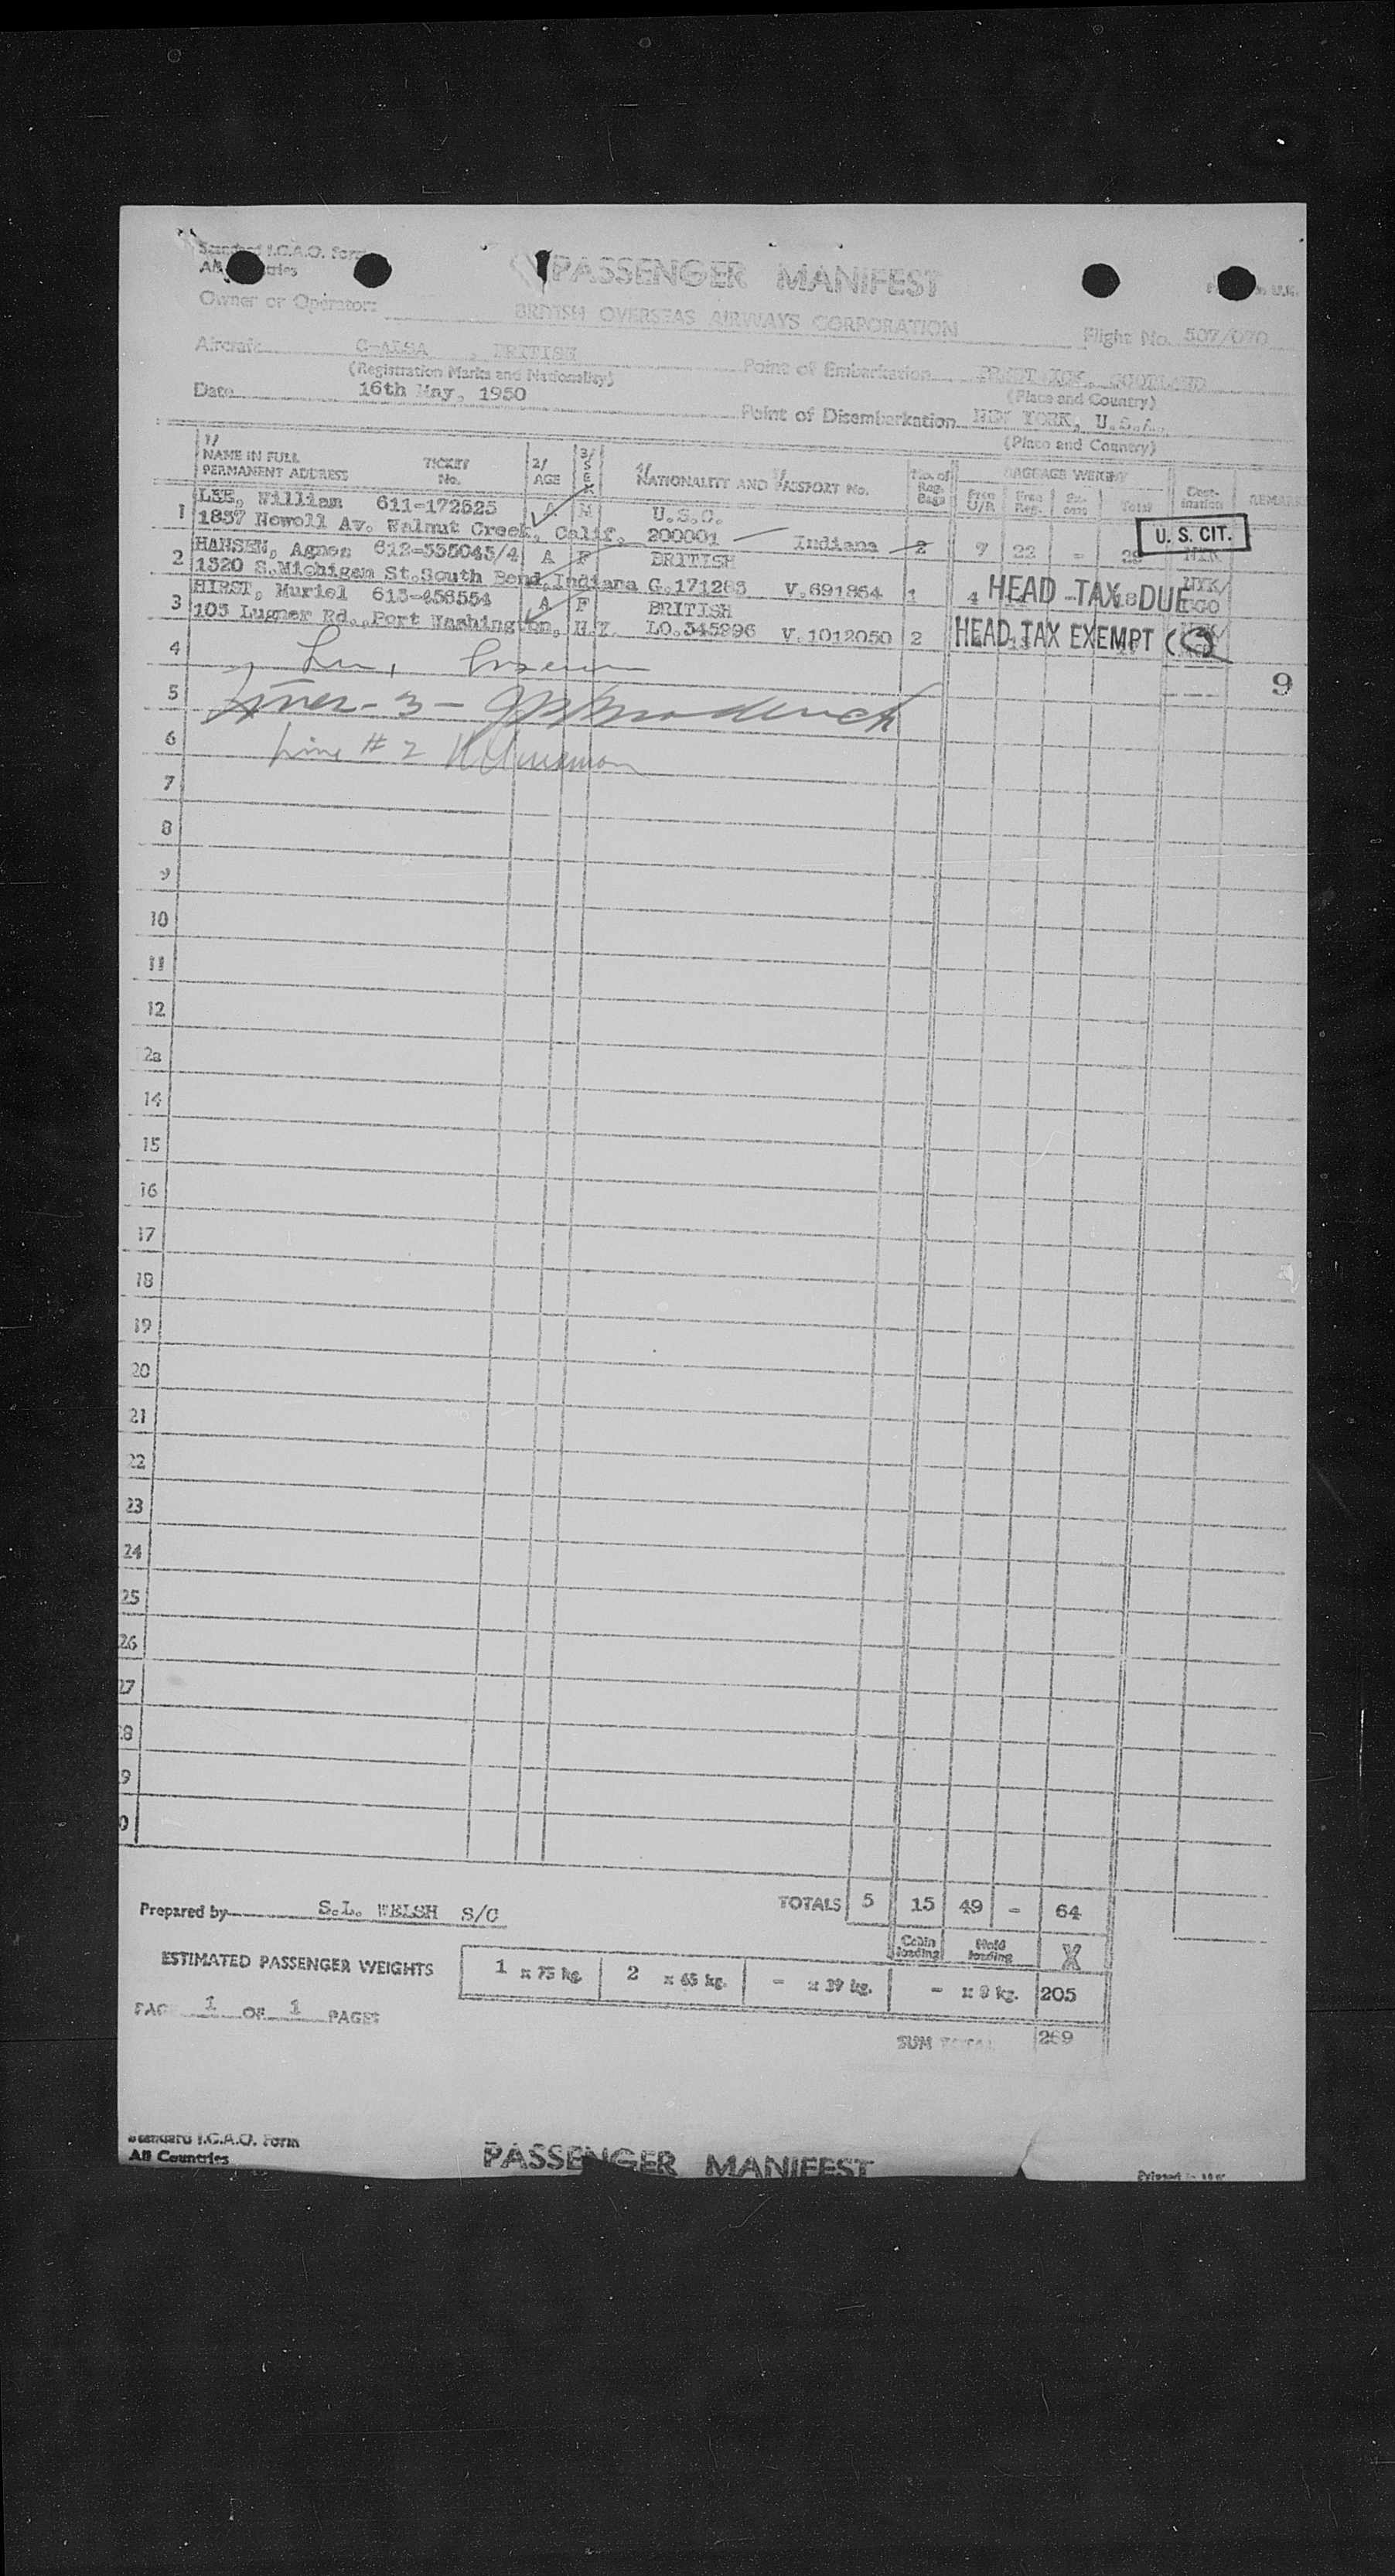 Standard I.C.A.O. Form
All Countries
PASSENGER MANIFEST
Owner or Operator: BRITISH OVERSEAS AIRWAYS CORPORATION
Flight No. 507/070
Aircraft G-ALSA, BRITISH
(Registration Marks and Nationality)
Point of Embarkation PRESTWICK, SCOTLAND
(Place and Country)
Date 16th May, 1950
Point of Disembarkation NEW YORK, U.S.A.
(Place and Country)
1/ NAME IN FULL PERMANENT ADDRESS TICKET No. 2/ AGE 3/ SEX 4/ NATIONALITY AND PASSPORT No. No. of Reg. Bags BAGGAGE WEIGHT Free U/R Free Reg. Ex-cess Total Dest-ination REMARKS
1 LEE, William 611-172525 A M U.S.C. U. S. CIT.
1857 Newell Av. Walnut Creek, Calif. 200001 Indiana 2 7 22 - 29 NYK
2 HANSEN, Agnes 612-535045/4 A F BRITISH
1320 S.Michigan St.South Bend,Indiana G.171283 V.691864 1 4 HEAD TAX DUE 18 NYK/
3 HIRST, Muriel 613-456554 A F BRITISH
103 Lugner Rd.,Port Washington, N.Y. LO.345296 V.1012050 2 HEAD TAX EXEMPT
4
9
5
6 Line # 2
7
8
9
10
11
12
12a
14
15
16
17
18
19
20
21
22
23
24
25
26
27
28
29
30
Prepared by S.L. WELSH S/C
TOTALS 5 15 49 - 64
Cabin loading Hold loading X
ESTIMATED PASSENGER WEIGHTS 1 x 75 kg. 2 x 65 kg. - x 39 kg. - x 8 kg. 205
PAGE 1 OF 1 PAGES
SUM TOTAL 269
Standard I.C.A.O. Form
All Countries
PASSENGER MANIFEST
Printed in U.K.